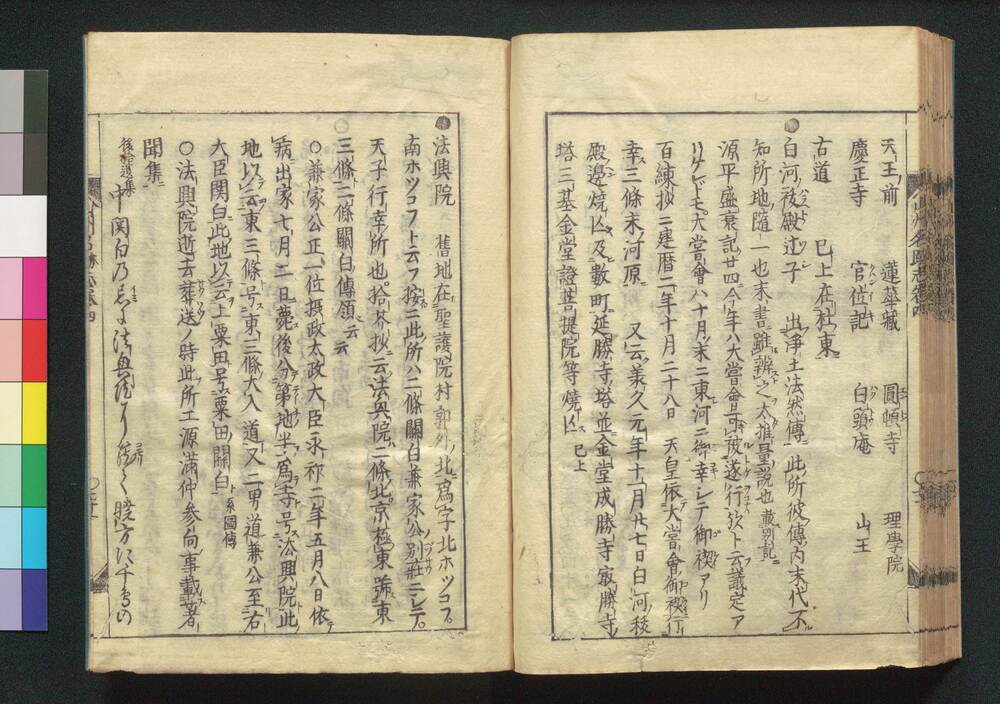 天王前　蓮華藏　圓頓寺　理學院
慶正寺　官位記　白頭庵　山王
古道　已上在社東
白河後殿辻子　出淨土法然傳　此所彼傳ノ内末代不
知所地隨一也末書雖辨之太推量説也 載別記
源平盛衰記廿四今年ハ大嘗會可被遂行歟ト云議定ア
リケレドモ大嘗會ハ十月ノ末ニ東河ニ御幸シテ御禊アリ
百練抄ニ建暦二年十月二十八日　天皇依大嘗會御禊行
幸三條末河原　又云承久元年十一月廿七日白河
殿邊燒亡及數町延勝寺塔並金堂成勝寺最勝寺
塔三基金堂證菩提院等燒亡 已上
法興院　舊地在聖護院村郭外北爲字北ホツコフ
南ホツコフト云フ按ニ此所ハ二條關白兼家公別莊ニシテ
天子行幸所也拾芥抄云法興院二條北京極東
三條二條關白傳領云云
〇兼家公正一位摂政太政大臣永祚二年五月八日依
病出家七月二日薨後分第地半爲寺号法興院此
地以云東三條号東三條大入道又二男道兼公至右
大臣関白此地以云上粟田号粟田關白 系圖傳
〇法興院逝去葬送ノ時此所ニ源滿仲參向事載著
聞集
後拾遺集
中関白乃忌に法興院に
暁方に千鳥の